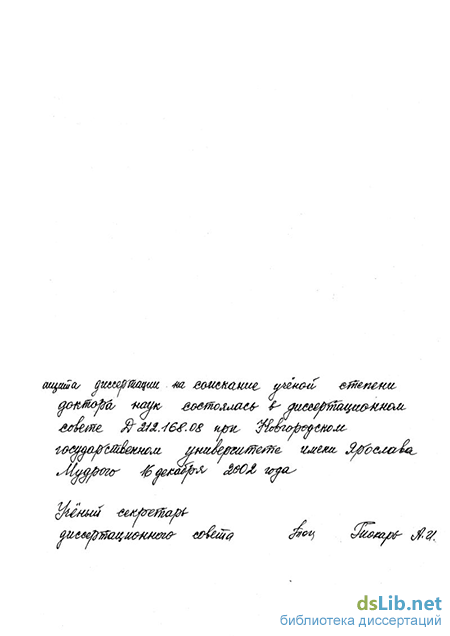 ащита диссертации на соискание учёной степени
доктора наук состоялась в диссертационном
совете Д 212.168.08 при Новгородском
государственном университете имени Ярослава
Мудрого 16 декабря 2002 года
Учёный секретарь
диссертационного совета А.И.
dsLib.net
библиотека диссертаций